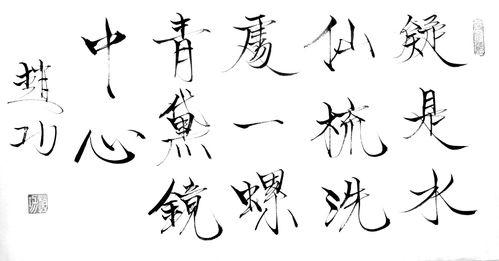 疑是水
仙梳洗
處一螺
青黛鏡
中心
趙功